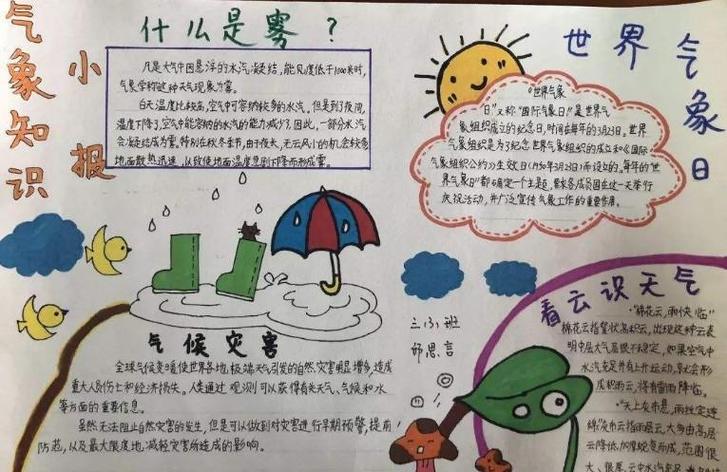 气象知识
小报
什么是雾？
凡是大气中因悬浮的水汽凝结，能见度低于1000米时，
气象学称这种天气现象为雾。
白天温度比较高，空气中可容纳较多的水汽。但是到了夜间，
温度下降了，空气中能容纳的水汽的能力减少了，因此，一部分水汽
会凝结成为雾。特别在秋冬季节，由于夜长，无云风小的机会较多
地面散热迅速，以致使地面温度急剧下降而形成雾。
世界气象日
“世界气象
日”又称“国际气象日”是世界气
象组织成立的纪念日，时间在每年的3月23日。世界
气象组织是为了纪念世界气象组织的成立和《国际
气象组织公约》生效日（1950年3月23日）而设立的。每年的“世
界气象日”都确定一个主题，要求各成员国在这一天举行
庆祝活动，并广泛宣传气象工作的重要作用。
气候灾害
全球气候变暖使世界各地极端天气引发的自然灾害明显增多，造成
重大人员伤亡和经济损失。人类通过观测可以获得有关天气、气候和水
等方面的重要信息。
虽然无法阻止自然灾害的发生，但是可以做到对灾害进行早期预警，提前
防范，以及最大限度地减轻灾害所造成的影响。
班
思言
看云识天气
“棉花云，雨快临”
棉花云指絮状高积云，出现这种云表
明中层大气层很不稳定，如果空气中
水汽充足并有上升运动，就会形
成积雨云，将有雷雨降临。
“天上灰布悬，雨丝定连
绵”灰布云指雨层云，大多由高层
云降低加厚蜕变而成，范围很
大、很厚，云中水汽充足